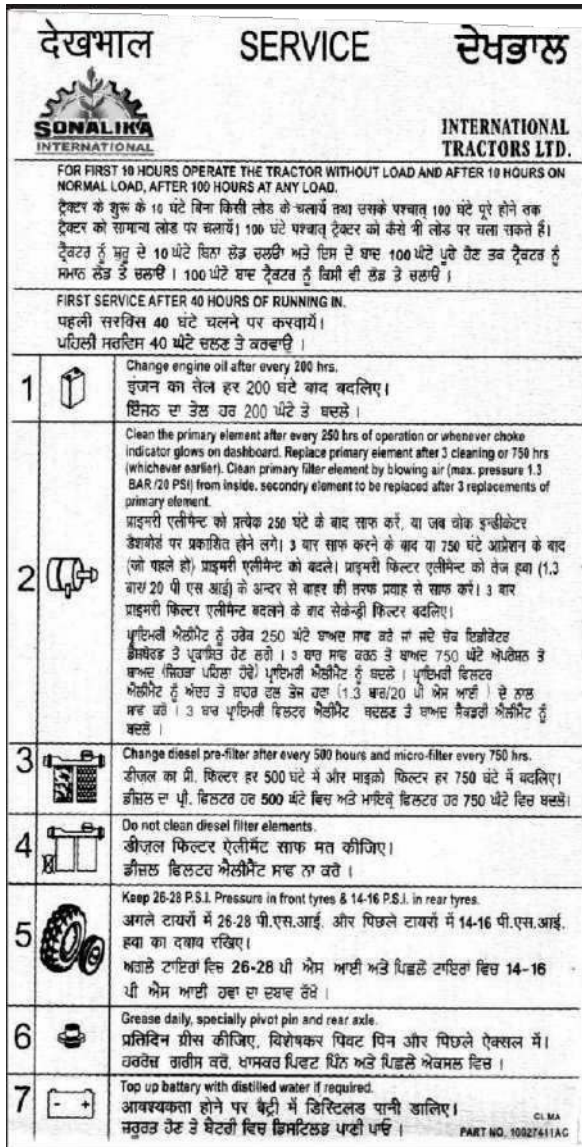 देखभाल SERVICE ਦੇਖਭਾਲ
SONALIKA
INTERNATIONAL
INTERNATIONAL
TRACTORS LTD.
FOR FIRST 10 HOURS OPERATE THE TRACTOR WITHOUT LOAD AND AFTER 10 HOURS ON
NORMAL LOAD, AFTER 100 HOURS AT ANY LOAD.
ट्रैक्टर के शुरू के 10 घंटे बिना किसी लोड के चलायें तथा उसके पश्चात् 100 घंटे पूरे होने तक
ट्रैक्टर को सामान्य लोड पर चलायें। 100 घंटे पश्चात् ट्रैक्टर को कैसे भी लोड पर चला सकते हैं।
ਟ੍ਰੈਕਟਰ ਨੂੰ ਸ਼ੁਰੂ ਦੇ 10 ਘੰਟੇ ਬਿਨਾ ਲੋਡ ਚਲਾਓ ਅਤੇ ਇਸ ਦੇ ਬਾਦ 100 ਘੰਟੇ ਪੂਰੇ ਹੋਣ ਤਕ ਟ੍ਰੈਕਟਰ ਨੂੰ
ਸਮਾਨ ਲੋਡ ਤੇ ਚਲਾਓ । 100 ਘੰਟੇ ਬਾਦ ਟ੍ਰੈਕਟਰ ਨੂੰ ਕਿਸੀ ਵੀ ਲੋਡ ਤੇ ਚਲਾਓ ।
FIRST SERVICE AFTER 40 HOURS OF RUNNING IN.
पहली सरविस 40 घंटे चलने पर करवायें।
ਪਹਿਲੀ ਸਰਵਿਸ 40 ਘੰਟੇ ਚਲਣ ਤੇ ਕਰਵਾਉ ।
1
Change engine oil after every 200 hrs.
इंजन का तेल हर 200 घंटे बाद बदलिए।
ਇੰਜਨ ਦਾ ਤੇਲ ਹਰ 200 ਘੰਟੇ ਤੇ ਬਦਲੋ ।
2
Clean the primary element after every 250 hrs of operation or whenever choke
indicator glows on dashboard. Replace primary element after 3 cleaning or 750 hrs
(whichever earlier). Clean primary filter element by blowing air (max. pressure 1.3
BAR /20 PSI) from inside. secondry element to be replaced after 3 replacements of
primary element.
प्राइमरी एलीमेन्ट को प्रत्येक 250 घंटे के बाद साफ करें, या जब चोक इन्डीकेटर
डैशबोर्ड पर प्रकाशित होने लगे। 3 बार साफ करने के बाद या 750 घंटे आप्रेशन के बाद
(जो पहले हो) प्राइमरी एलीमेन्ट को बदले। प्राइमरी फिल्टर एलीमेन्ट को तेज हवा (1.3
बार/ 20 पी एस आई) के अन्दर से बाहर की तरफ प्रवाह से साफ करें। 3 बार
प्राइमरी फिल्टर एलीमेन्ट बदलने के बाद सेकेन्ड्री फिल्टर बदलिए।
ਪ੍ਰਾਇਮਰੀ ਐਲੀਮੈਂਟ ਨੂੰ ਹਰੇਕ 250 ਘੰਟੇ ਬਾਅਦ ਸਾਫ ਕਰੋ ਜਾਂ ਜਦੋ ਚੋਕ ਇੰਡੀਕੇਟਰ
ਡੈਸ਼ਬੋਰਡ ਤੇ ਪ੍ਰਕਾਸ਼ਿਤ ਹੋਣ ਲਗੇ । 3 ਬਾਰ ਸਾਫ ਕਰਨ ਤੋ ਬਾਅਦ 750 ਘੰਟੇ ਅਪਰੇਸ਼ਨ ਤੋ
ਬਾਅਦ (ਜਿਹੜਾ ਪਹਿਲਾ ਹੋਵੇ) ਪ੍ਰਾਇਮਰੀ ਐਲੀਮੈਂਟ ਨੂੰ ਬਦਲੋ । ਪ੍ਰਾਇਮਰੀ ਫਿਲਟਰ
ਐਲੀਮੈਂਟ ਨੂੰ ਅੰਦਰ ਤੋ ਬਾਹਰ ਵਲ ਤੇਜ ਹਵਾ (1.3 ਬਾਰ/20 ਪੀ ਐਸ ਆਈ ) ਦੇ ਨਾਲ
ਸਾਫ ਕਰੋ । 3 ਬਾਰ ਪ੍ਰਾਇਮਰੀ ਫਿਲਟਰ ਐਲੀਮੈਂਟ ਬਦਲਣ ਤੋ ਬਾਅਦ ਸੈਕਡਰੀ ਐਲੀਮੈਂਟ ਨੂੰ
ਬਦਲੋ ।
3
Change diesel pre-filter after every 500 hours and micro-filter every 750 hrs.
डीज़ल का प्री. फिल्टर हर 500 घंटे में और माइक्रो फिल्टर हर 750 घंटे में बदलिए।
ਡੀਜ਼ਲ ਦਾ ਪ੍ਰੀ. ਫਿਲਟਰ ਹਰ 500 ਘੰਟੇ ਵਿਚ ਅਤੇ ਮਾਇਕ੍ਰੋ ਫਿਲਟਰ ਹਰ 750 ਘੰਟੇ ਵਿਚ ਬਦਲੋ।
4
Do not clean diesel filter elements.
डीज़ल फिल्टर ऐलीमैंट साफ मत कीजिए।
ਡੀਜ਼ਲ ਫਿਲਟਰ ਐਲੀਮੈਂਟ ਸਾਫ ਨਾ ਕਰੋ ।
5
Keep 26-28 P.S.I. Pressure in front tyres & 14-16 P.S.I. in rear tyres.
अगले टायरों में 26-28 पी.एस.आई. और पिछले टायरों में 14-16 पी.एस.आई.
हवा का दबाव रखिए।
ਅਗਲੇ ਟਾਇਰਾਂ ਵਿਚ 26-28 ਪੀ ਐਸ ਆਈ ਅਤੇ ਪਿਛਲੇ ਟਾਇਰਾਂ ਵਿਚ 14-16
ਪੀ ਐਸ ਆਈ ਹਵਾ ਦਾ ਦਬਾਵ ਰੱਖੋ ।
6
Grease daily, specially pivot pin and rear axle.
प्रतिदिन ग्रीस कीजिए, विशेषकर पिवट पिन और पिछले ऐक्सल में।
ਹਰਰੋਜ਼ ਗਰੀਸ ਕਰੋ, ਖਾਸਕਰ ਪਿਵਟ ਪਿੰਨ ਅਤੇ ਪਿਛਲੇ ਐਕਸਲ ਵਿਚ ।
7
Top up battery with distilled water if required.
आवश्यकता होने पर बैट्री में डिस्टिलड पानी डालिए।
ਜ਼ਰੂਰਤ ਹੋਣ ਤੇ ਬੈਟਰੀ ਵਿਚ ਡਿਸਟਿਲਡ ਪਾਣੀ ਪਾਓ ।
CI. MA
PART NO. 10027411AG